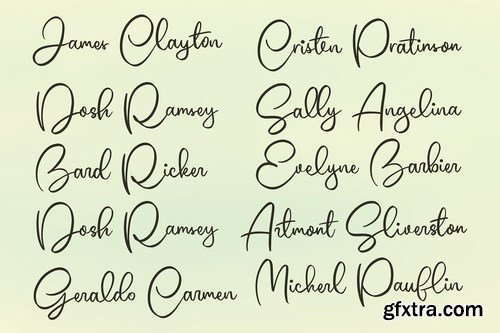 James Clayton
Cristen Pratinson
Dosh Ramsey
Sally Angelina
Bard Ricker
Evelyne Barbier
Dosh Ramsey
Artmont Sliverston
Geraldo Carmen
Micherl Pauflin
gfxtra.com